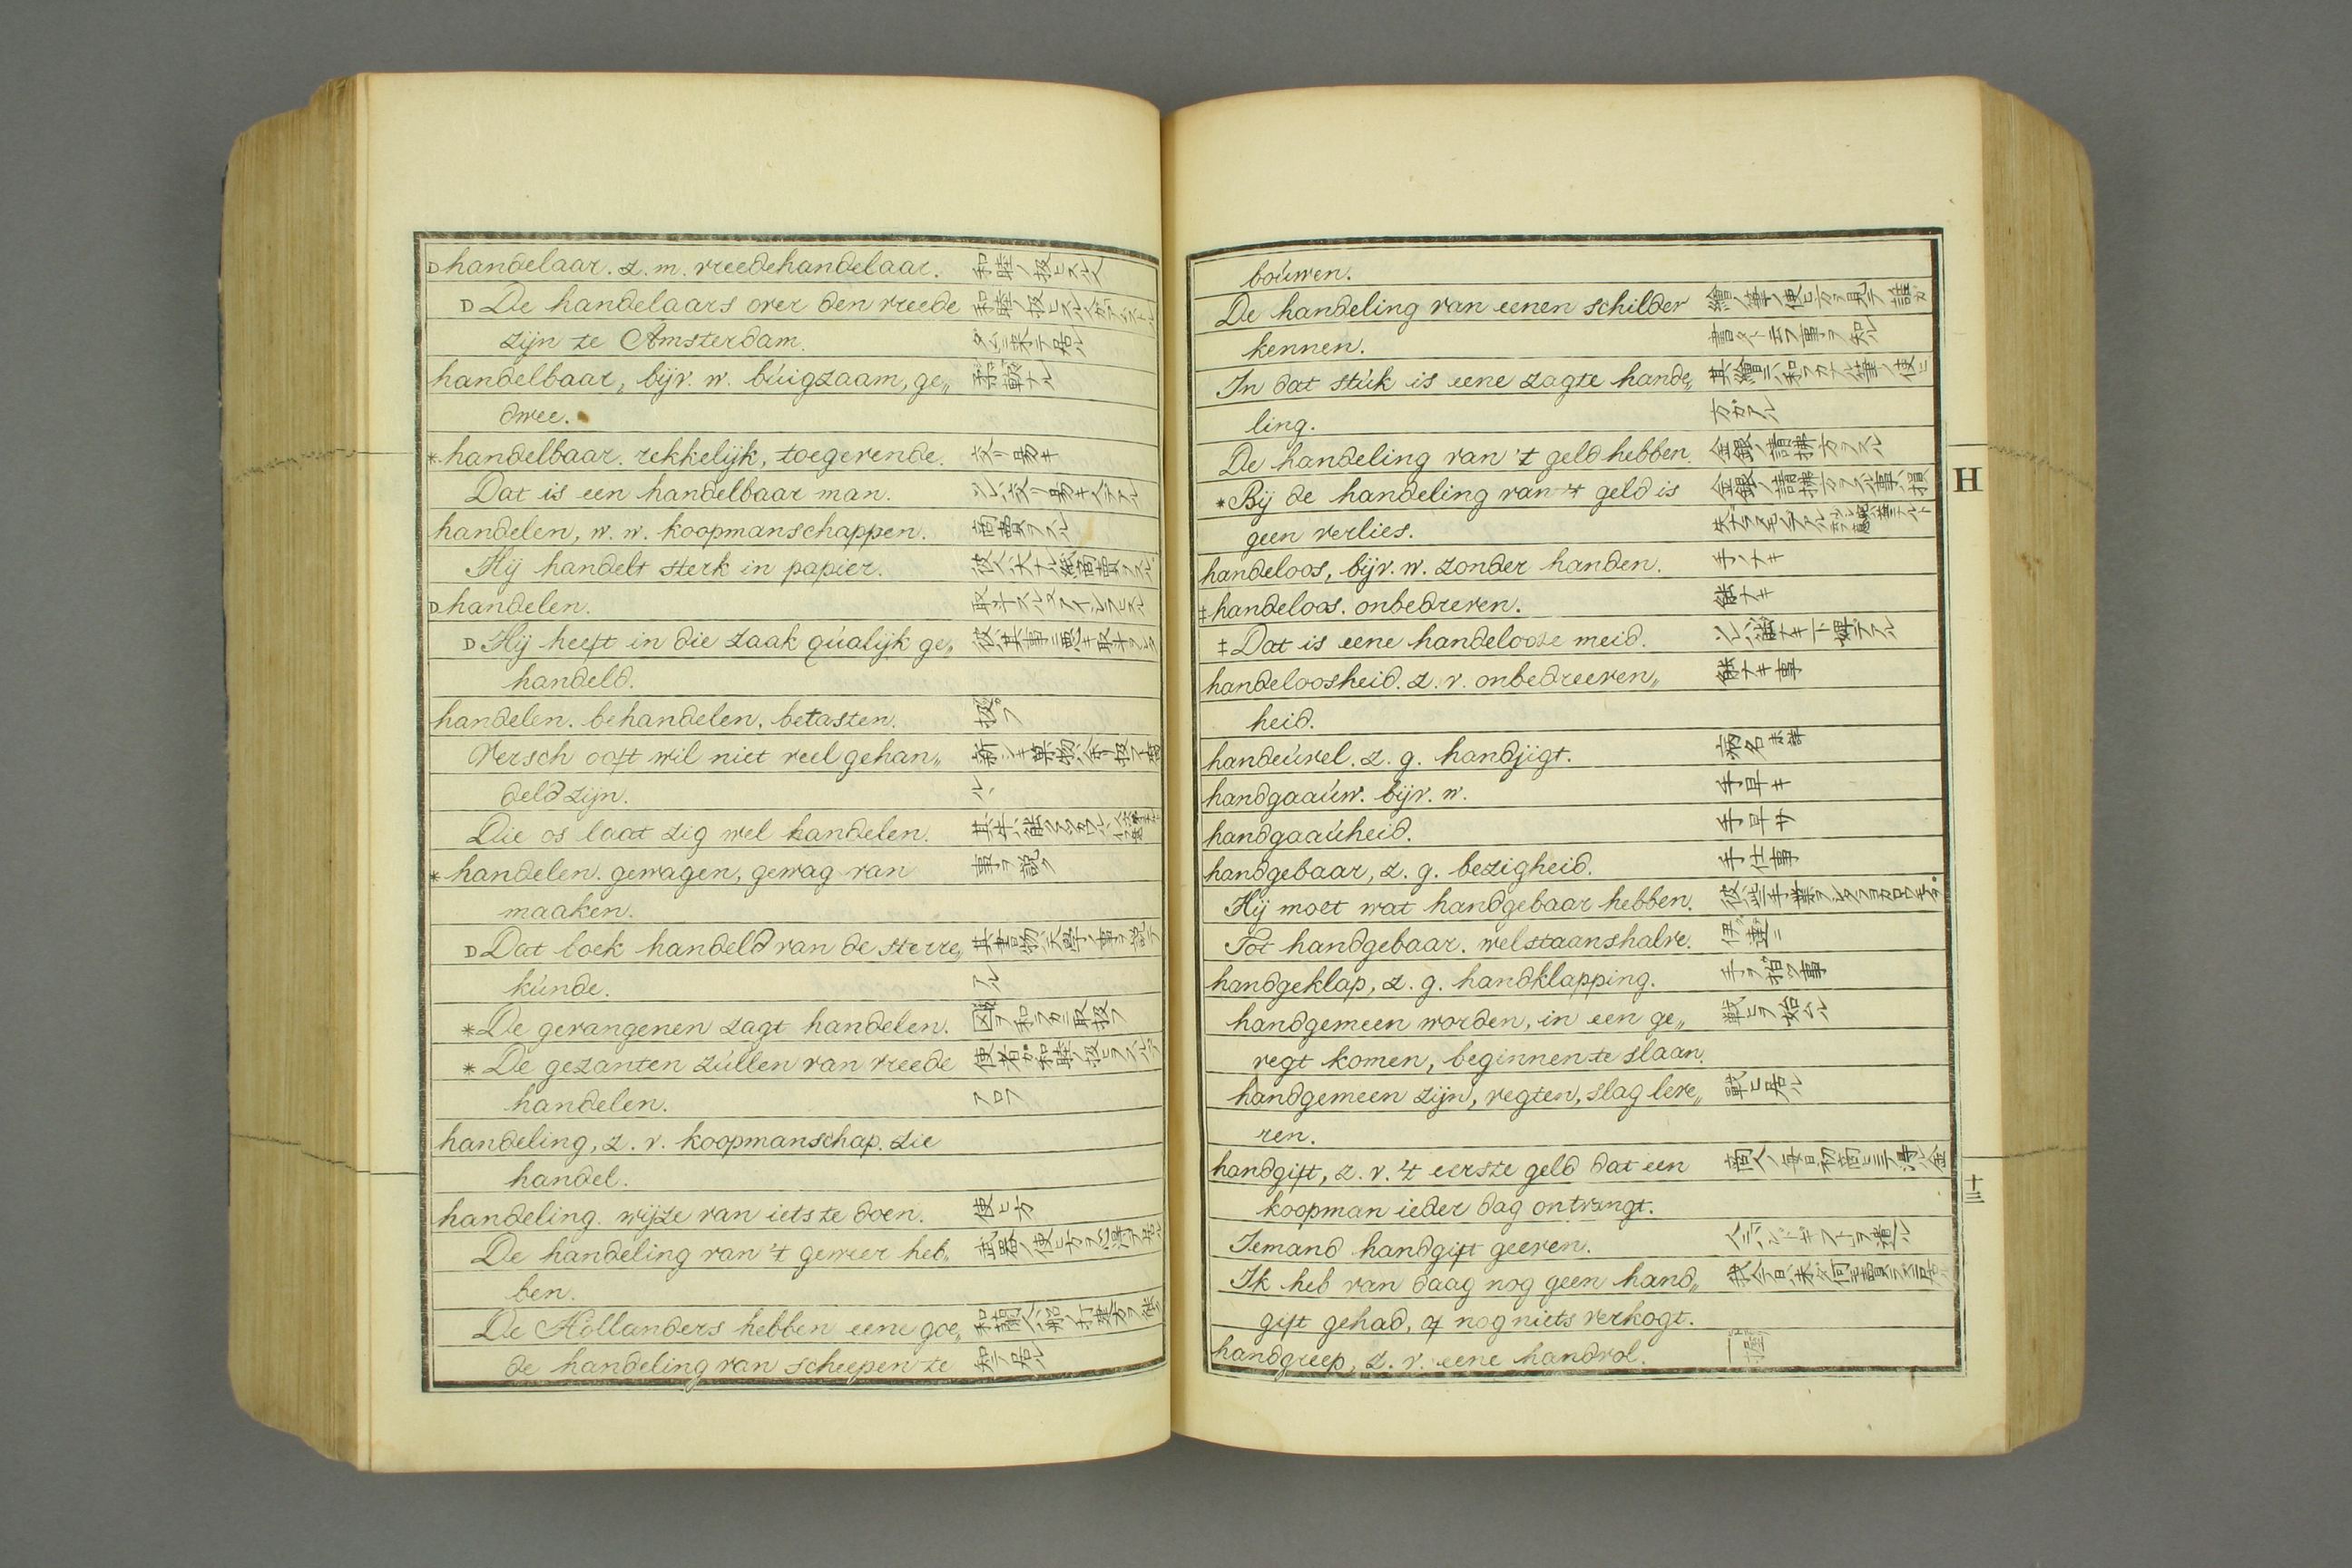 D handelaar. z. m. vreedehandelaar. 和睦ノ扱ヒスル人
D De handelaars over den vreede 和睦ノ扱ヒスル人ガアムストル
zijn te Amsterdam. ダムニ来テ居ル
handelbaar, bijv. w. búigzaam, ge„ 柔軟ナル
dwee.
* handelbaar. rekkelijk, toegevende. 交リ易キ
Dat is een handelbaar man. ソレハ交リ易キ人デアル
handelen, w. w. koopmanschappen. 商賣ヲスル
Hij handelt sterk in papier. 彼人ハ大ナル紙商賣ヲスル
D handelen. 取サ
D Hij heeft in die zaak qúalijk ge„ 彼ハ其事ニ悪キ取
handeld.
handelen. behandelen. betasten. 扱フ
Versch ooft wil niet veel gehan„ 新シキ菓物ハ余リ扱
deld zijn.
Die os laat zig wel handelen. 其牛ハ能
* handelen. gewagen, gewag van 事ヲ説ク
maaken.
D Dat boek handeld van de sterre„ 其書物ハ天學ノ事ヲ説テ
kúnde. アル
* De gevangenen zagt handelen. 囚ヲ和ラカニ取扱フ
* De gezanten zúllen van vreede 使者ガ和睦ノ扱ヒヲスルデ
handelen. アロフ
handeling, z. v. koopmanschap. zie
handel.
handeling. wijze van iets te doen. 使ヒ方
De handeling van 't geweer heb„ 武器ノ使ヒ方ヲ心得テ居ル
ben.
De Hollanders hebben eene goe„ 和蘭人ハ船ノ打建方ヲ能ク
de handeling van scheepen te 知テ居ル
boúwen.
De handeling van eenen schilder 繪ノ筆ノ使ヒ方ヲ見テ誰ガ
kennen. 書タト云フ事ヲ知ル
In dat stúk is eene zagte hande„ 其繪ニハ和ラカナル筆ノ使ヒ
ling. 方ガアル
De handeling van 't geld hebben. 金銀ノ請拂方ヲスル
* Bij de handeling van 't geld is 金銀ノ請拂方ヲスル事ハ損
geen verlies.
handeloos, bijv. w. zonder handen. 手ノナキ
‡ handeloos. onbedreven. 能ナキ
‡ Dat is eene handeloose meid. ソレハ能ナキ下婢デアル
handeloosheid. z. v. onbedreeven„ 能ナキ事
heid.
handeúvel. z. g. handjigt. 病名 未詳
handgaaúw. bijv. w. 手早キ
handgaaúheid. 手早サ
handgebaar, z. g. bezigheid. 手仕事
Hij moet wat handgebaar hebben. 彼ハ些手業ヲ
Tot handgebaar. welstaanshalve. 伊達ニ
handgeklap, z. g. handklapping. 手ヲ拍ツ事
handgemeen worden, in een ge„ 戦ヒヲ始ムル
vegt komen, beginnen te slaan.
handgemeen zijn, vegten, slag leve„ 戰ヒ居ル
ren.
handgift, z. v. 't eerste geld dat een 商人ノ毎日初商ヒニテ得ル金
koopman ieder dag ontvangt.
Iemand handgift geeven. 人ニハンドギフトヲ遣ル
Ik heb van daag nog geen hand„ 我今日ハ未ダ何モ賣ラズニ居ル
gift gehad, of nog niets verkogt.
handgreep, z. v. eene handvol. 一握
H
十三